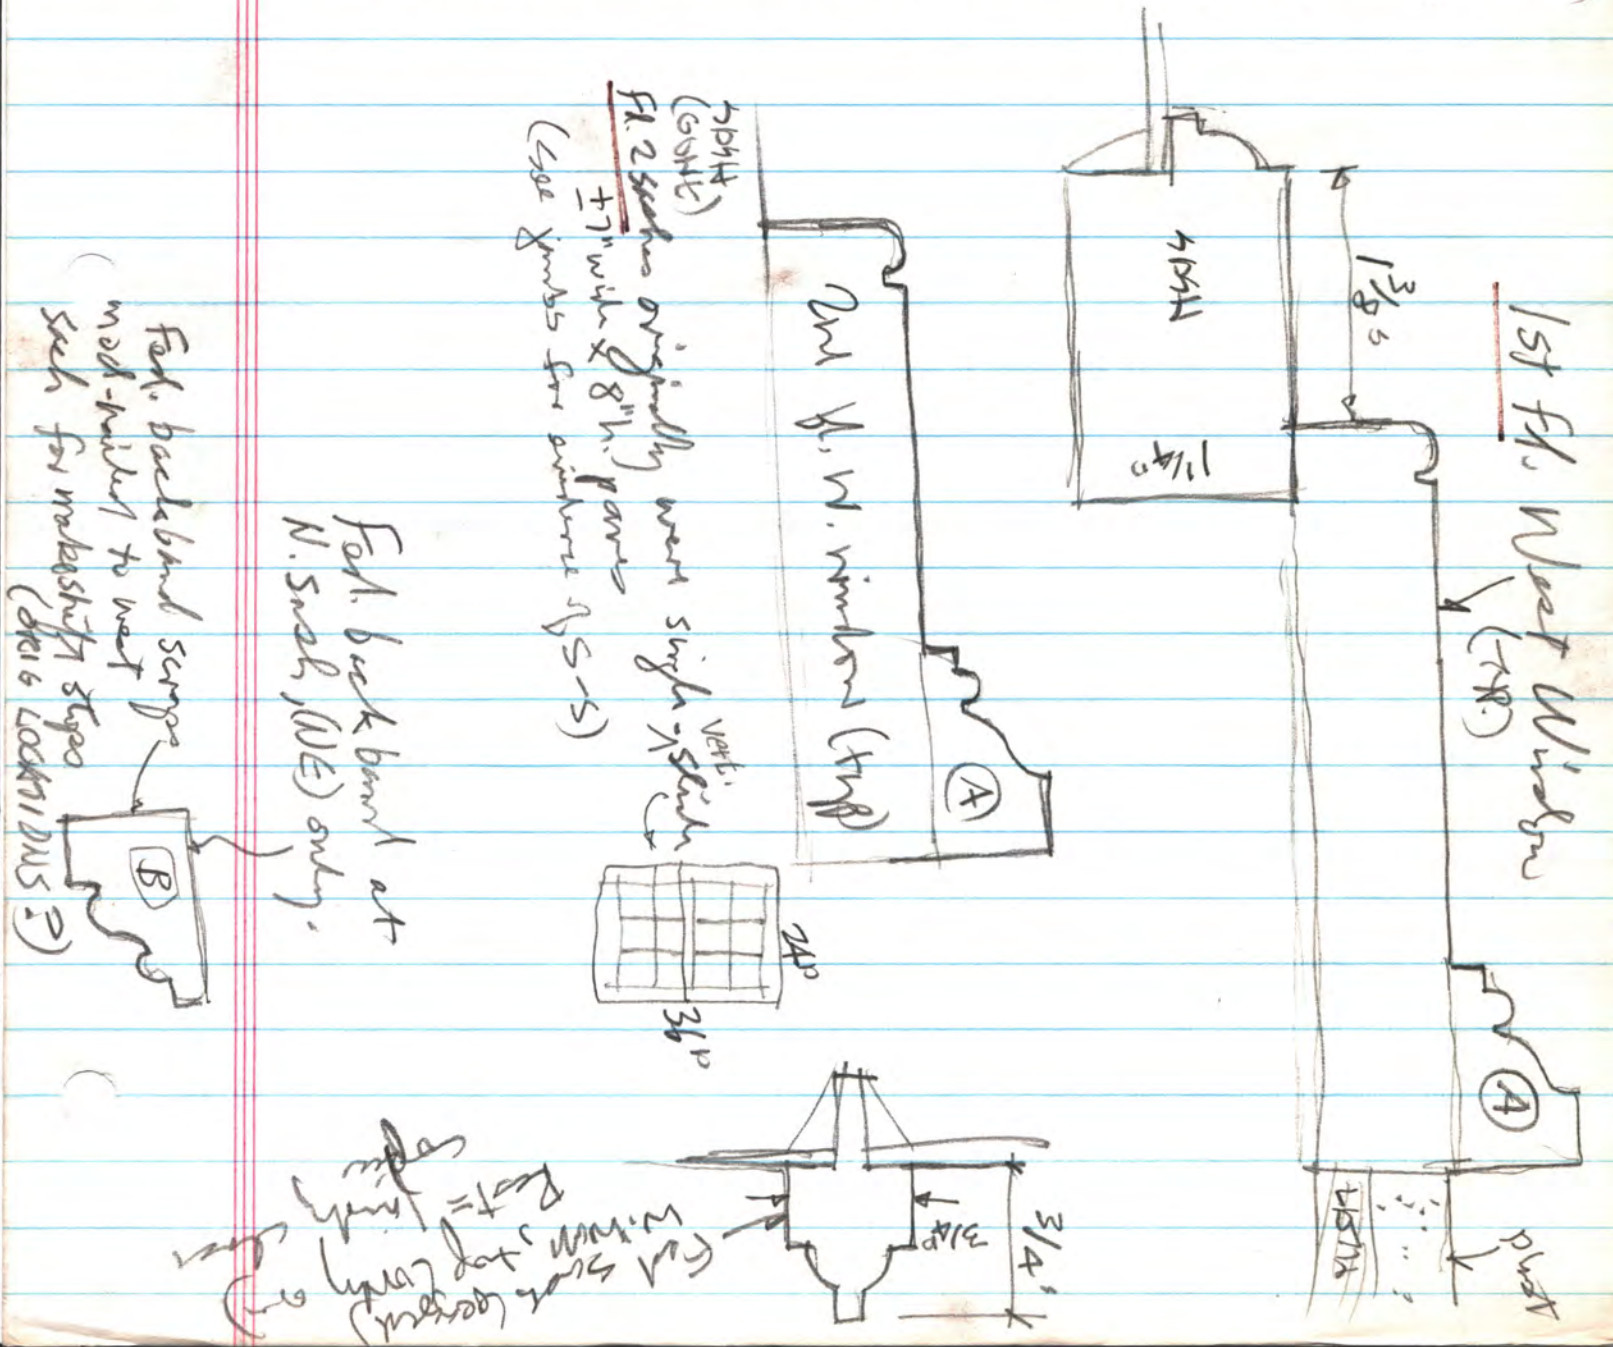 1st Fl. West Window
(TYP.)
1 3/8"
SASH
1 1/4"
A
plast
LATH
2nd fl. W. window (typ)
A
SASH
(GONE)
Fl. 2 sashes originally were single vert. slide
±7" wide x 8" h. panes
(see jambs for evidence of S-S)
24P
36P
Fed. backband at
N. Sash, (NE) only.
B
Fed. backband scraps
mod-nailed to west
sash for makeshift stops
(ORIG LOCATIONS?)
3/4"
3/4"
Fed sash (
window, top (only
Rest =